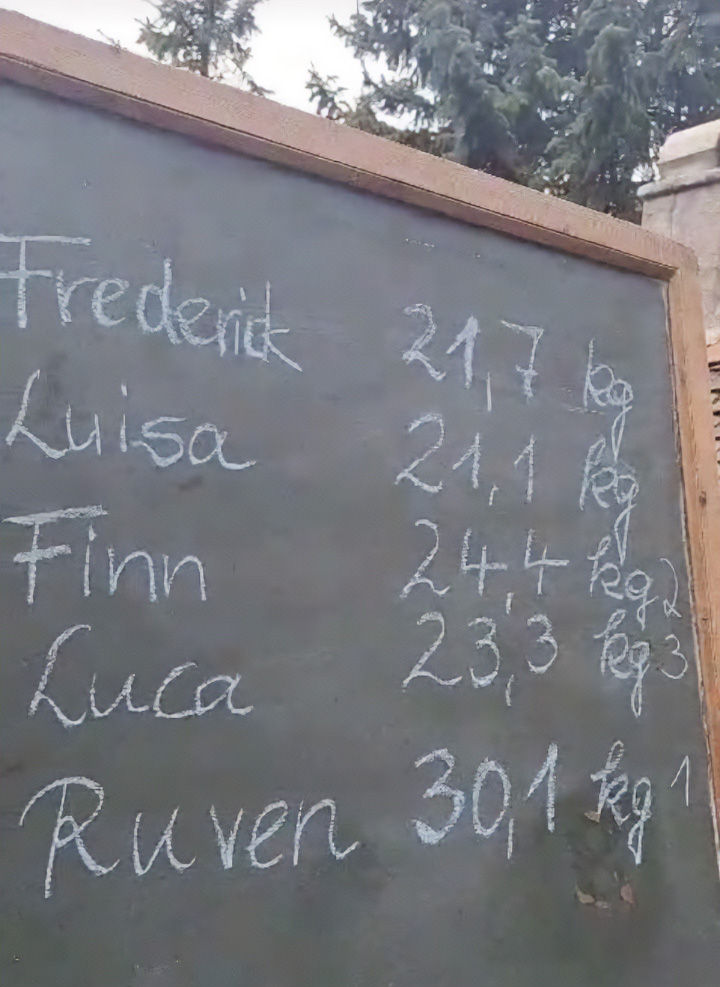 Frederick 21,7 kg
Luisa 21,1 kg
Finn 24,4 kg 2
Luca 23,3 kg 3
Ruven 30,1 kg 1